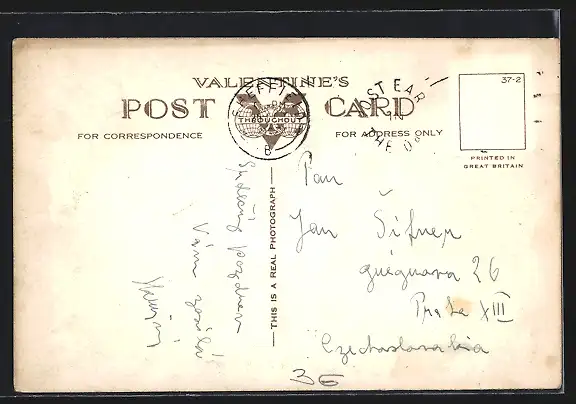 VALENTINE'S
POST CARD
SHEFFIELD
B
THROUGHOUT
POST EARLY
IN
THE DAY
37-2
PRINTED IN
GREAT BRITAIN
FOR CORRESPONDENCE
FOR ADDRESS ONLY
THIS IS A REAL PHOTOGRAPH
Srdečný pozdrav
Vám zasílá
Pan
Jan Šifner
26
Praha XIII
Czechoslovakia
36